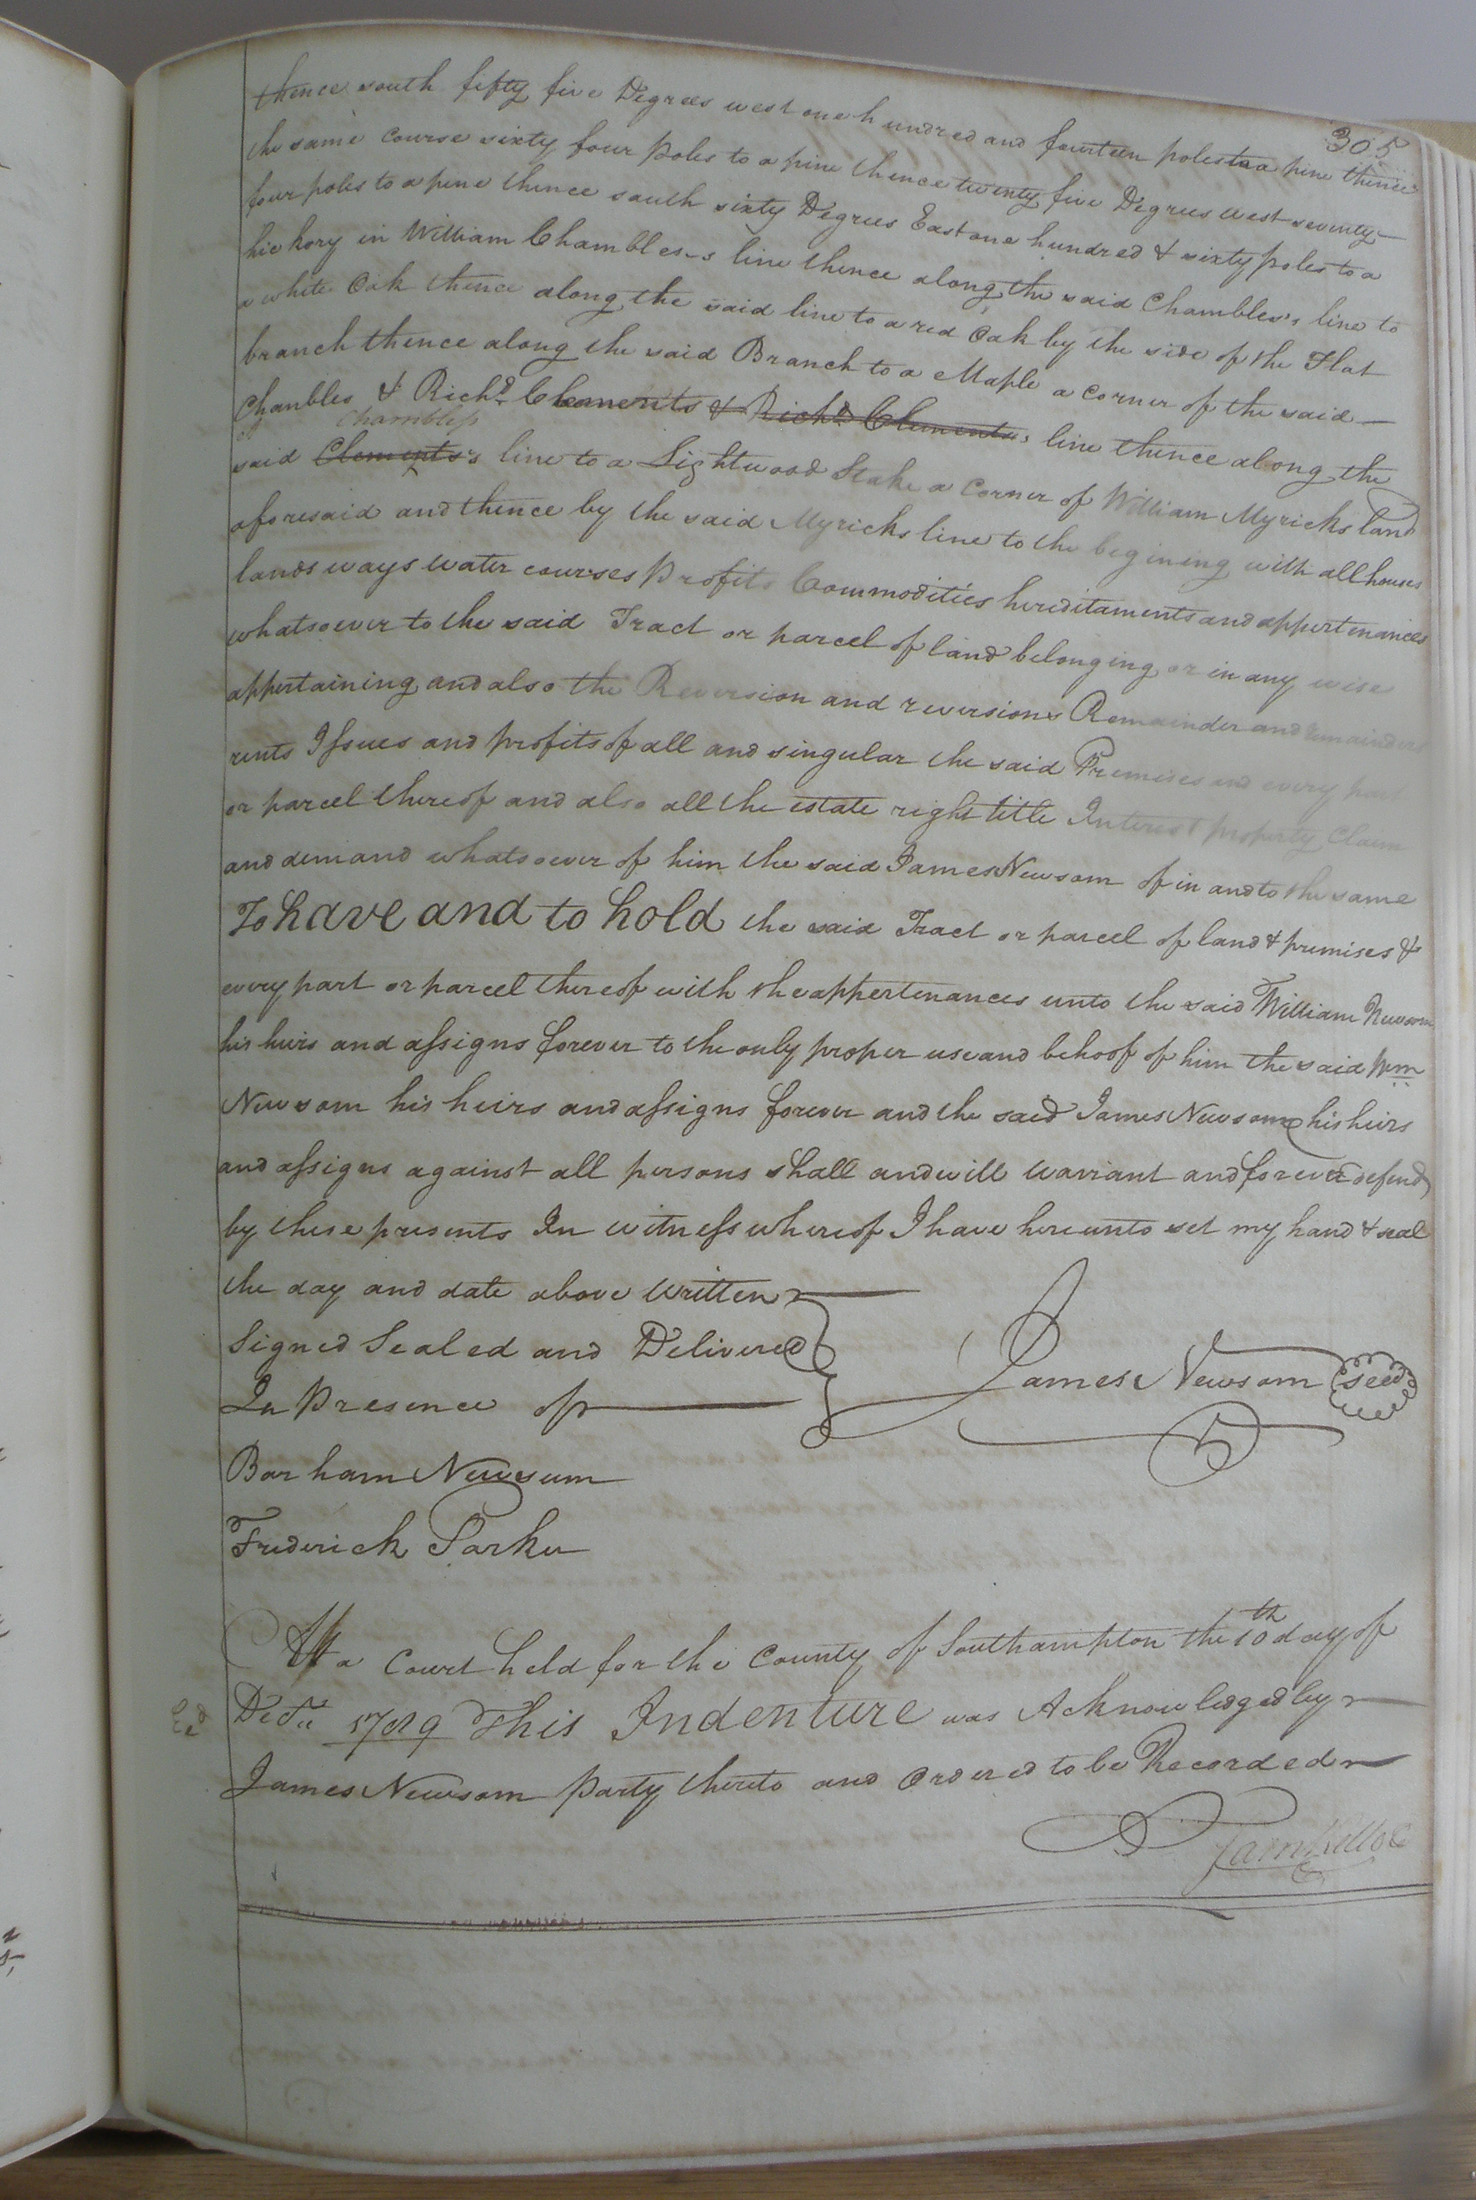 305
thence south fifty five Degrees west one hundred and fourteen poles to a pine thence
the same course sixty four poles to a pine thence twenty five Degrees west seventy
four poles to a pine thence south sixty Degrees East one hundred & sixty poles to a
hickory in William Chambles's line thence along the said Chambles's line to
a white Oak thence along the said line to a red Oak by the side of the Flat
branch thence along the said Branch to a Maple a corner of the said
Chambles & Richd. Clements & Richd Clements's line thence along the
Chambless
said Clements's line to a Lightwood Stake a corner of William Myricks land
aforesaid and thence by the said Myricks line to the begining with all houses
lands ways water courses profits Commodities hereditaments and appertenances
whatsoever to the said Tract or parcel of land belonging or in any wise
appertaining and also the Reversion and reversions Remainder and remainders
rents Issues and profits of all and singular the said Premises and every part
or parcel thereof and also all the estate right title Interest property Claim
and demand whatsoever of him the said James Newsom of in and to the same
To have and to hold the said Tract or parcel of land & premises &
every part or parcel thereof with the appertenances unto the said William Newsom
his heirs and assigns forever to the only proper use and behoof of him the said Wm
Newsom his heirs and assigns forever and the said James Newsom his heirs
and assigns against all persons shall and will warrant and forever defend
by these presents In witness whereof I have hereunto set my hand & seal
the day and date above written
Signed Sealed and Delivered
In Presence of
James Newsom seed
Barham Newsum
Frederick Parker
At a Court held for the County of Southampton the 10th day of
Decr. 1789 This Indenture was Acknowledged by
Exd
James Newsom party thereto and ordered to be Recorded